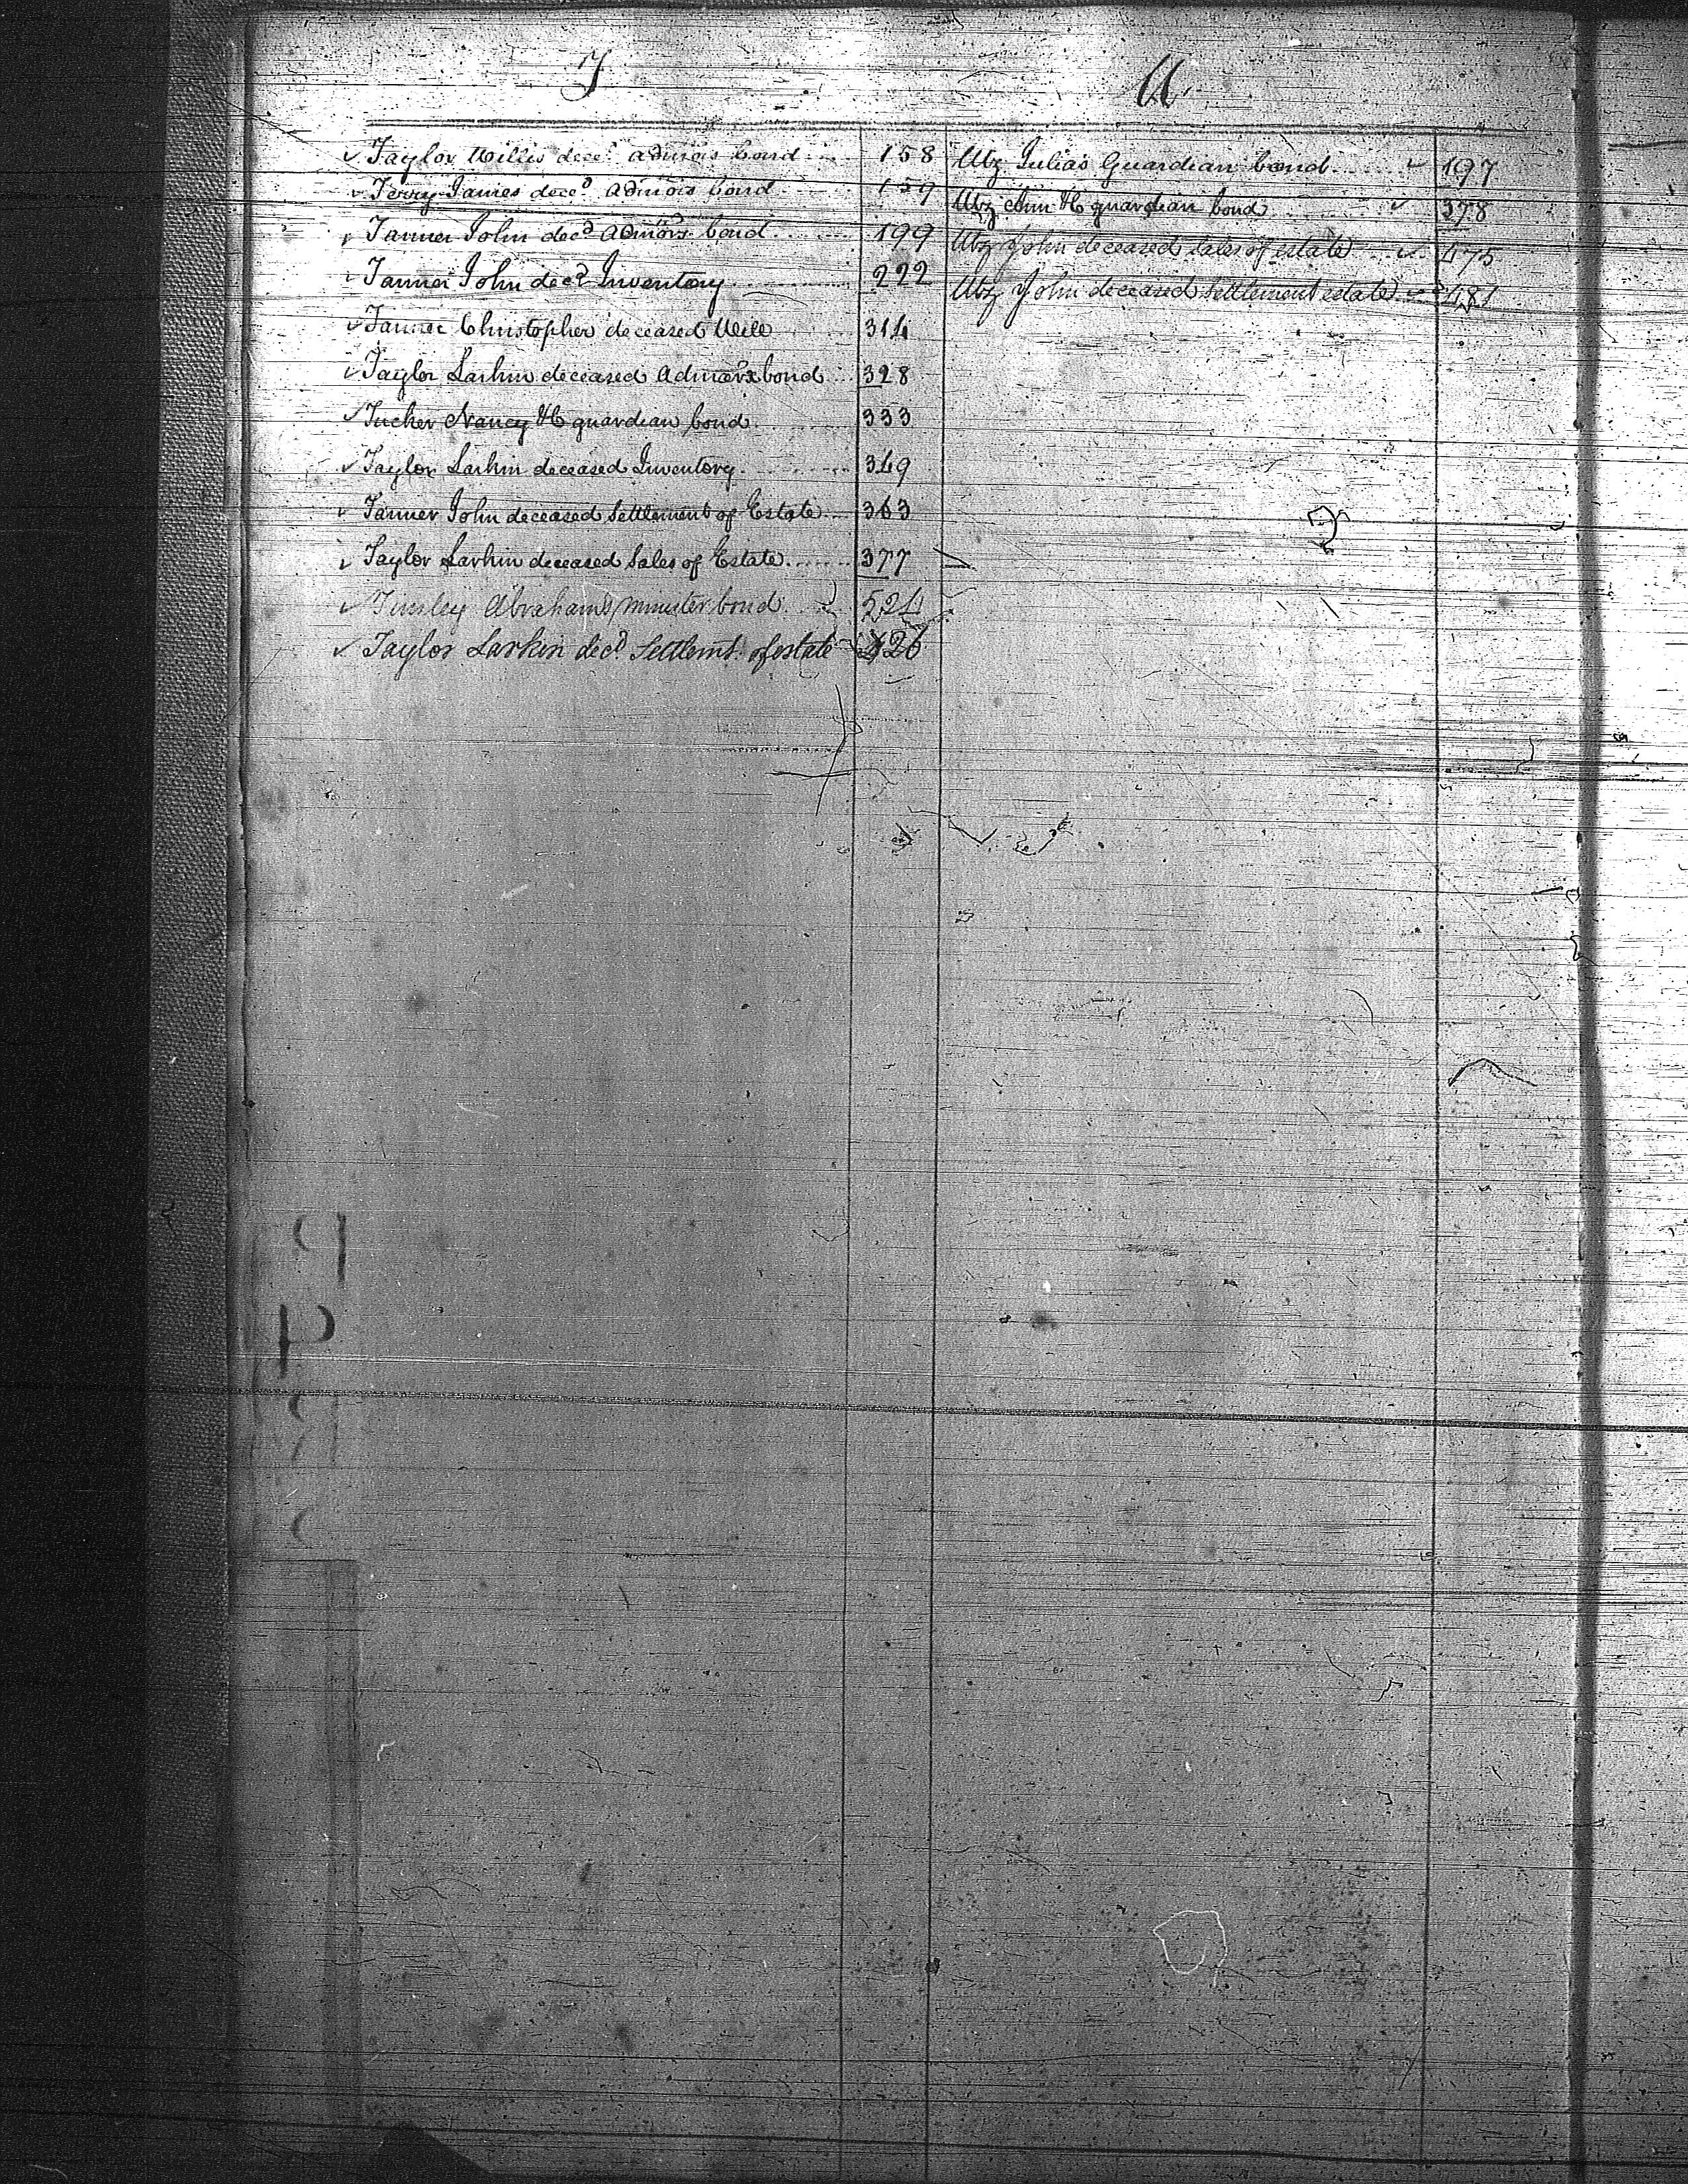 T
Taylor Willis decd. admors bond 158
Terry James decd admors bond 159
Tanner John decd admors bond 199
Tanner John decd Inventory 222
Tanner Christopher deceased Will 314
Taylor Larkin deceased admorx bond 328
Tucker Nancy H guardian bond 333
Taylor Larkin deceased Inventory 349
Tanner John deceased Settlement of Estate 363
Taylor Larkin deceased Sales of Estate 377
Tinsley Abrahams minister bond 524
Taylor Larkin decd. Settlemt. of estate 426
U
Utz Julias Guardian bond 197
Utz Ann H guardian bond 378
Utz John deceased sales of estate 475
Utz John deceased settlement estate 481